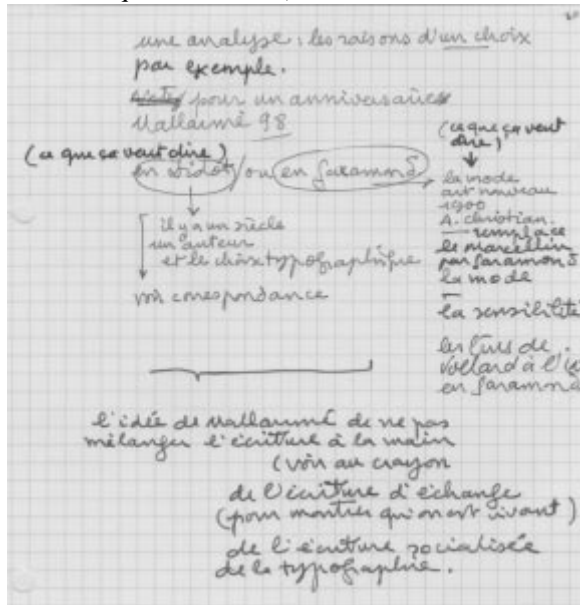 une analyse : les raisons d'un choix
par exemple.
pour un anniversaire
Mallarmé 98
(ce que ça veut dire)
en Didot / ou en Garamond
il y a un siècle
un auteur
et le choix typographique
voir correspondance
(ce que ça veut
dire)
la mode
art nouveau
1900
A. Christian.
remplace
le marcellin
par Garamond
la mode
la sensibilité
les livres de
Vollard à l'I
en Garamond
l'idée de Mallarmé de ne pas
mélanger l'écriture à la main
(voir au crayon
de l'écriture d'échange
(pour montrer qu'on est vivant)
de l'écriture socialisée
de la typographie.